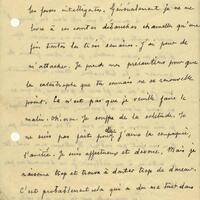 les fores intelligentes. Généralement je ne me
livre à ces courtes débauches charnelles qu'une
fois toutes les trois semaines. J'ai peur de
m'attacher. Je prends mes précautions pour que
la catastrophe que tu connais ne se renouvelle
point. Ce n'est pas que je veuille faire le
malin. Oh, non. Je souffre de la solitude. Je
ne suis pas fait pour elle, j'aime la compagnie,
l'amitié. Je suis affectueux et dévoué. Mais je
raisonne trop et trouve à douter trop de douceur.
C'est probablement cela qui a du me tout dans